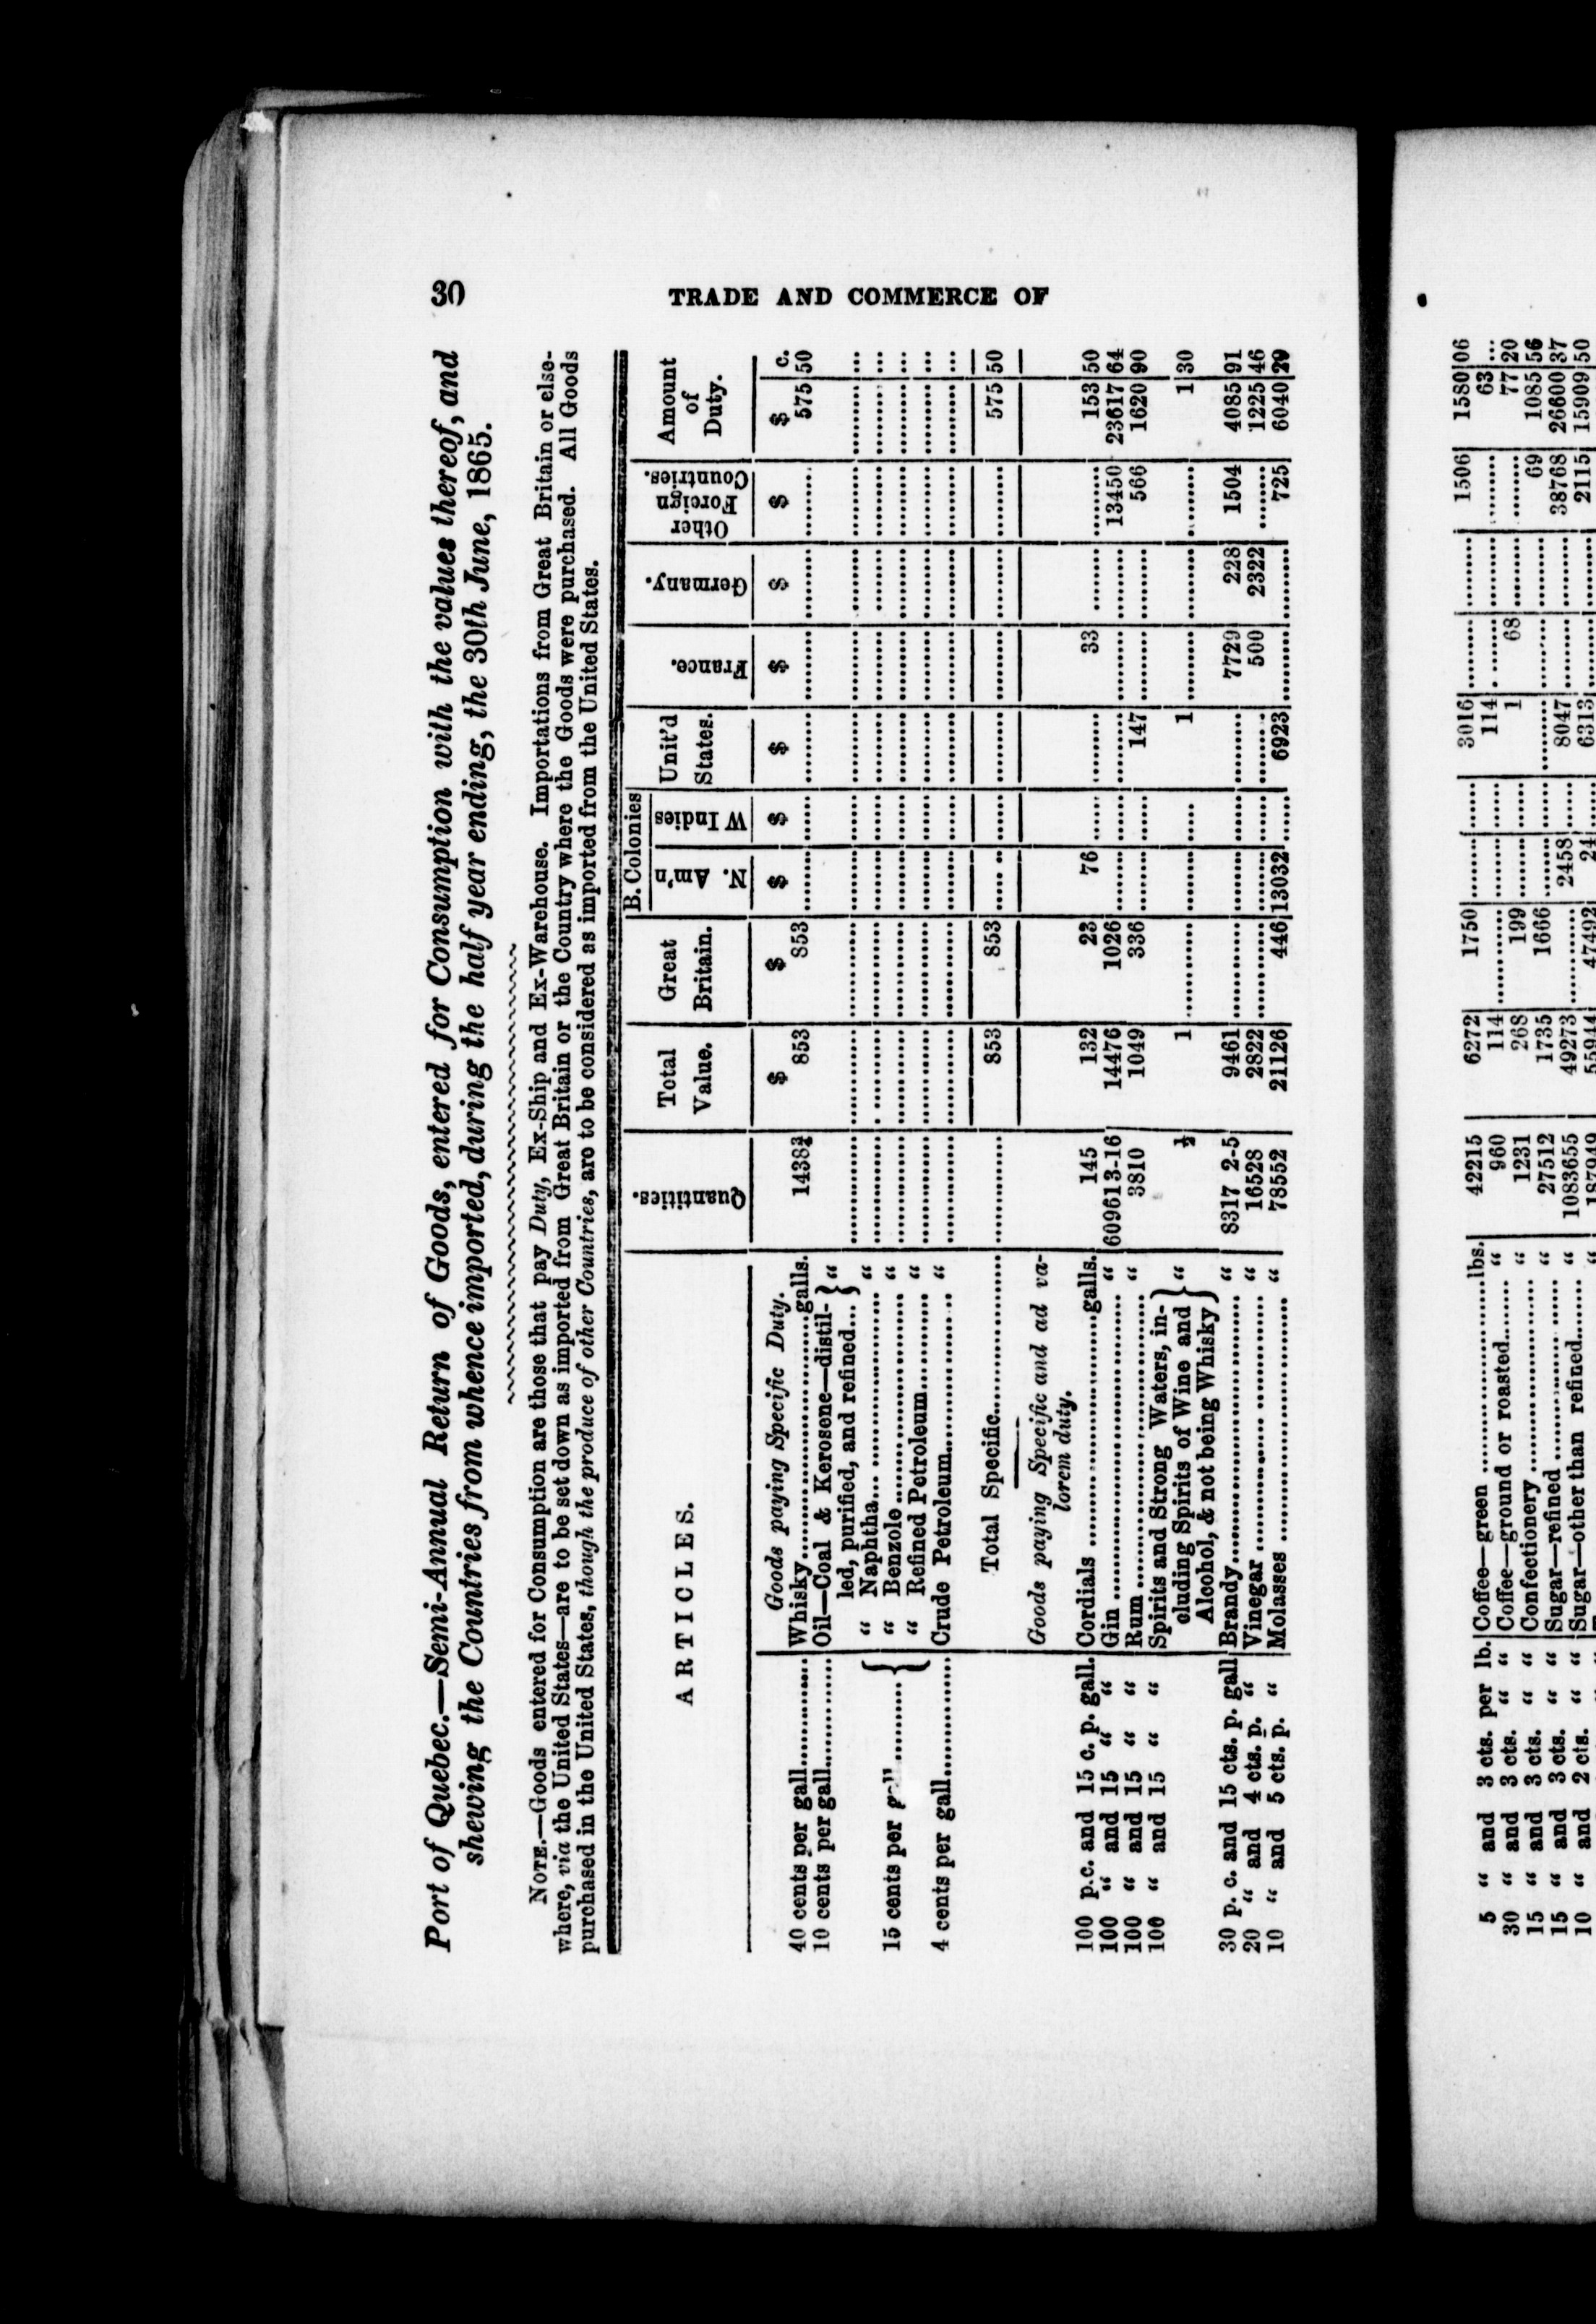 30
TRADE AND COMMERCE OF
Port of Quebec.—Semi-Annual Return of Goods, entered for Consumption with the values thereof, and
shewing the Countries from whence imported, during the half year ending, the 30th June, 1865.
NOTE.—Goods entered for Consumption are those that pay Duty, Ex-Ship and Ex-Warehouse. Importations from Great Britain or else-
where, via the United States—are to be set down as imported from Great Britain or the Country where the Goods were purchased. All Goods
purchased in the United States, though the produce of other Countries, are to be considered as imported from the United States.
ARTICLES. Quantities. Total Value. Great Britain. B. Colonies N. Am'n W Indies Unit'd States. France. Germany. Other Foreign Countries. Amount of Duty.
$ $ $ $ $ $ $ $ $ c.
Goods paying Specific Duty.
40 cents per gall............ Whisky..............................galls. 1438¾ 853 853 ......... ...... ......... ......... ......... ......... 575 50
10 cents per gall............ Oil—Coal & Kerosene—distil- } "
led, purified, and refined... }
" Naphtha........................ "
15 cents per ............ { " Benzole........................ "
" Refined Petroleum............ "
4 cents per gall............ Crude Petroleum.................. "
Total Specific.................. ............ 853 853 ..... .. ...... ......... ......... ......... ......... 575 50
Goods paying Specific and ad va-
lorem duty.
100 p.c. and 15 c. p. gall. Cordials ..............................galls. 145 132 23 76 ...... ......... 33 ......... ......... 153 50
100 " and 15 " " Gin .............................. " 609613-16 14476 1026 ......... ...... ......... ......... ......... 13450 23617 64
100 " and 15 " " Rum .............................. " 3810 1049 336 ......... ...... 147 ......... ......... 566 1620 90
100 " and 15 " " Spirits and Strong Waters, in- }
cluding Spirits of Wine and } " ½ 1 ............ ......... ...... 1 ......... ......... ......... 1 30
Alcohol, & not being Whisky }
30 p. c. and 15 cts. p. gall Brandy.............................. " 8317 2-5 9461 ............ ......... ...... ......... 7729 228 1504 4085 91
20 " and 4 cts. p. " Vinegar .............................. " 16528 2822 ............ ......... ...... ......... 500 2322 ......... 1225 46
10 " and 5 cts. p. " Molasses .............................. " 78552 21126 446 13032 ...... 6923 ......... ......... 725 6040 29
5 " and 3 cts. per lb. Coffee—green ..............................lbs. 42215 6272 1750 ......... ...... 3016 ......... ......... 1506 1580 06
30 " and 3 cts. " " Coffee—ground or roasted......... " 960 114 ............ ......... ...... 114 ......... ......... ......... 63 ...
15 " and 3 cts. " " Confectionery ..................... " 1231 268 199 ......... ...... 1 68 ......... ......... 77 20
15 " and 3 cts. " " Sugar—refined ..................... " 27512 1735 1666 ......... ...... ......... ......... ......... 69 1085 56
10 " and 2 cts. " " Sugar—other than refined......... " 1083655 49273 ............ 2458 ...... 8047 ......... ......... 38768 26600 37
55944 47492 24 ...... 6313 ......... ......... 2115 15909 50